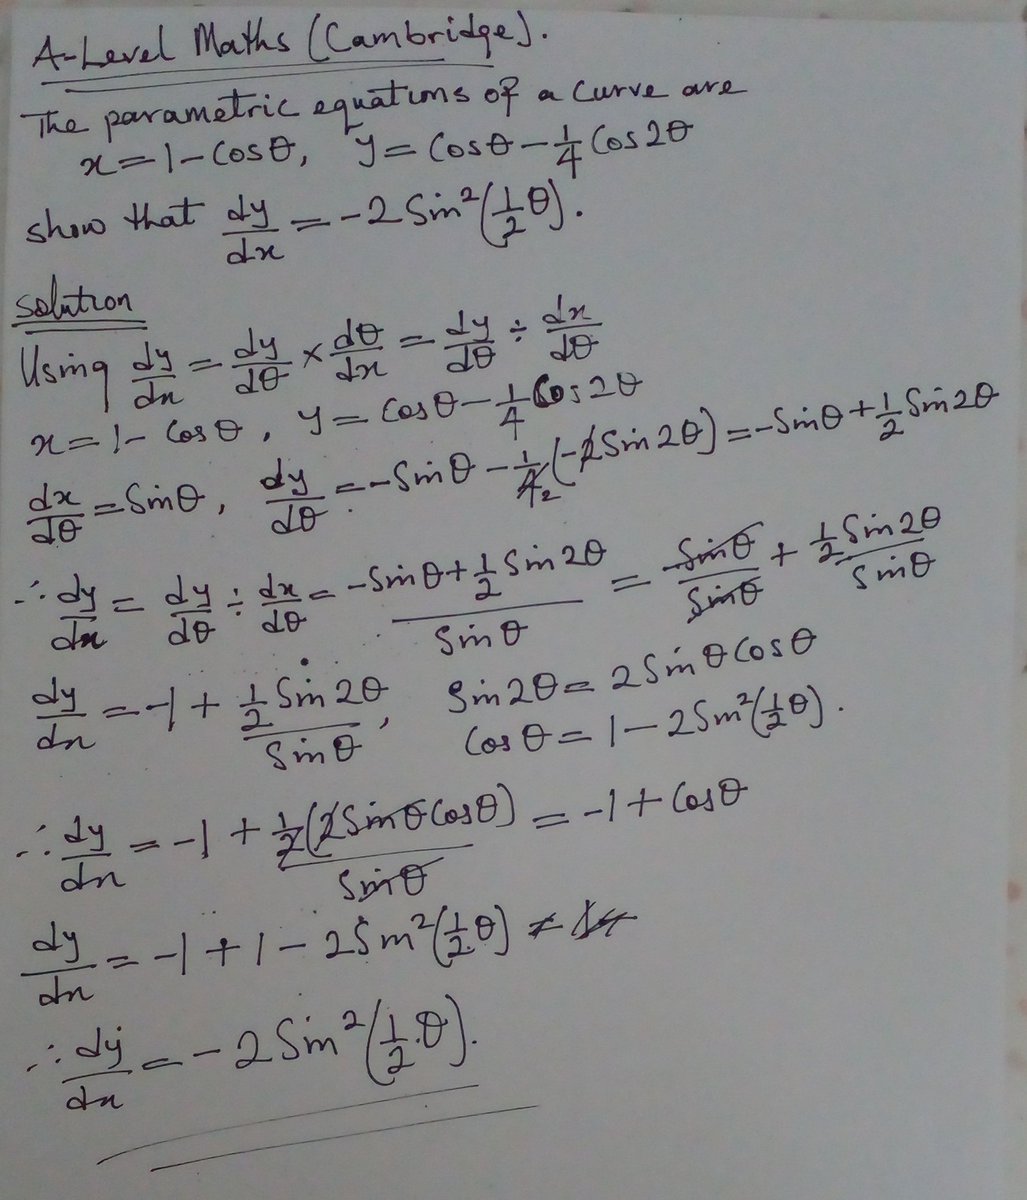 A-Level Maths (Cambridge).
The parametric equations of a curve are
x = 1 - Cosθ, y = Cosθ - 1/4 Cos2θ
show that dy/dx = -2 Sin²(1/2 θ).
solution
Using dy/dx = dy/dθ × dθ/dx = dy/dθ ÷ dx/dθ
x = 1 - Cosθ, y = Cosθ - 1/4 Cos2θ
dx/dθ = Sinθ, dy/dθ = -Sinθ - 1/4₂(-2Sin2θ) = -Sinθ + 1/2 Sin2θ
∴ dy/dx = dy/dθ ÷ dx/dθ = (-Sinθ + 1/2 Sin2θ)/Sinθ = -Sinθ/Sinθ + (1/2 Sin2θ)/Sinθ
dy/dx = -1 + (1/2 Sin2θ)/Sinθ, Sin2θ = 2SinθCosθ
Cosθ = 1 - 2Sin²(1/2 θ).
∴ dy/dx = -1 + (1/2(2SinθCosθ))/Sinθ = -1 + Cosθ
dy/dx = -1 + 1 - 2Sin²(1/2 θ)
∴ dy/dx = -2 Sin²(1/2 θ).